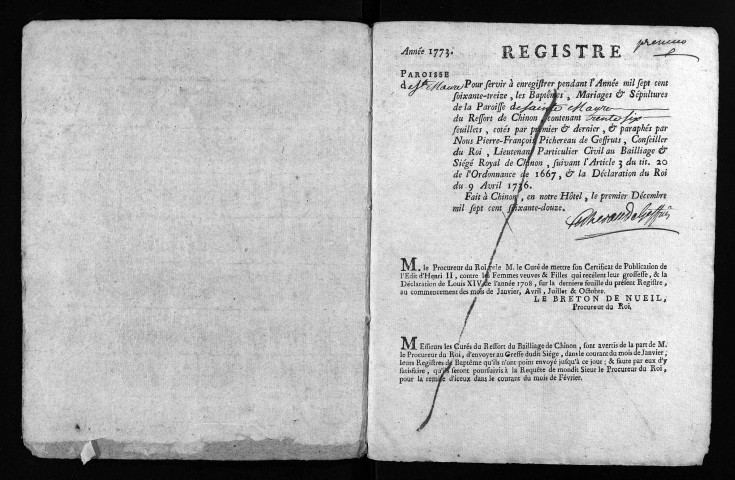 Année 1773. REGISTRE premier
PAROISSE
de Ste Maure Pour servir à enregistrer pendant l'Année mil sept cent
soixante-treize, les Baptêmes, Mariages & Sépultures
de la Paroisse de Sainte Maure
du Ressort de Chinon, contenant trente six
feuillets, cotés par premier & dernier, & paraphés par
Nous Pierre-François Pichereau de Geffruts, Conseiller
du Roi, Lieutenant Particulier Civil au Bailliage &
Siégé Royal de Chinon, suivant l'Article 3 du tit. 20
de l'Ordonnance de 1667, & la Déclaration du Roi
du 9 Avril 1736.
Fait à Chinon, en notre Hôtel, le premier Décembre
mil sept cent soixante-douze.
Pichereau de Geffruts
M. le Procureur du Roi, prie M. le Curé de mettre son Certificat de Publication de
l'Edit d'Henri II, contre les Femmes veuves & Filles qui recélent leur grossesse, & la
Déclaration de Louis XIV, de l'année 1708, sur la derniere feuille du présent Registre,
au commencement des mois de Janvier, Avril, Juillet & Octobre.
LE BRETON DE NUEIL,
Procureur du Roi,
MEssieurs les Curés du Ressort du Bailliage de Chinon, sont avertis de la part de M.
le Procureur du Roi, d'envoyer au Greffe dudit Siége, dans le courant du mois de Janvier,
leurs Registres de Baptême qu'ils n'ont point envoyé jusqu'à ce jour; & faute par eux d'y
satisfaire, qu'ils seront poursuivis à la Requête de mondit Sieur le Procureur du Roi,
pour la remise d'iceux dans le courant du mois de Février.